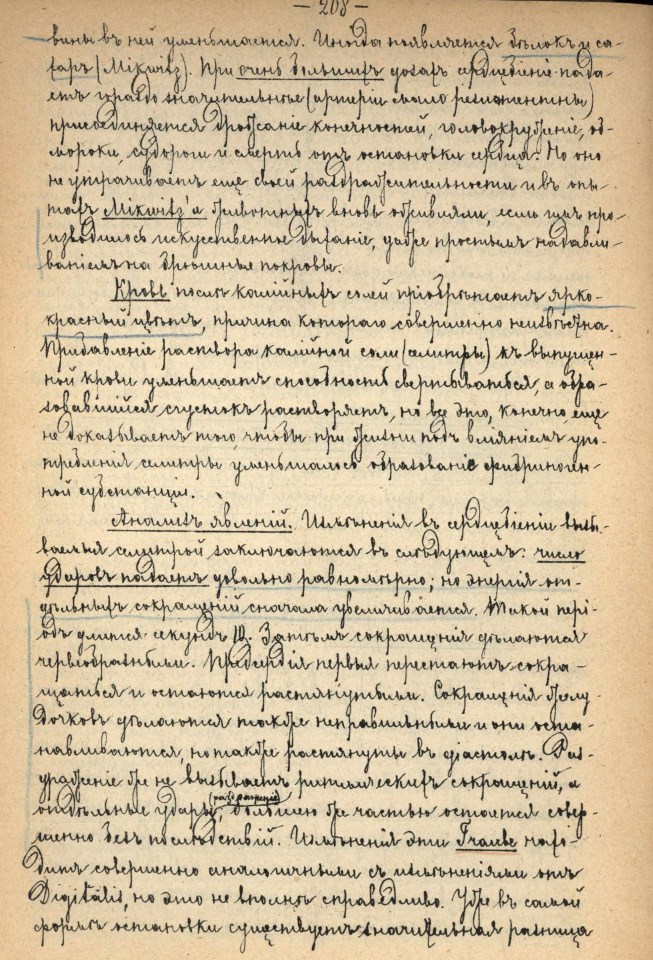 — 208 —
вины въ ней уменьшается. Иногда появляется бѣлокъ и са-
харъ (Mikwitz). При очень большихъ дозахъ сердцебіеніе пада-
етъ гораздо значительнѣе (артеріи мало резистентны)
присоединяется дрожаніе конечностей, головокруженіе, об-
мороки, судороги и смерть отъ остановки сердца. Но оно
не утрачиваетъ еще своей раздражительности и въ опы-
тахъ Mikwitz'a животныхъ вновь оживляли, если имъ про-
изводилось искусственное дыханіе, даже простымъ надавли-
ваніемъ на брюшные покровы.
Кровь послѣ калійныхъ солей пріобрѣтаетъ ярко-
красный цвѣтъ, причина котораго совершенно неизвѣстна.
Прибавленіе раствора калійной соли (селитры) къ выпущен-
ной крови уменьшаетъ способность свертываться, а обра-
зовавшійся сгустокъ растворяетъ, но все это, конечно, еще
не доказываетъ того, чтобы при жизни подъ вліяніемъ упо-
требленія селитры уменьшалось образованіе фибриноген-
ной субстанціи.
Анализъ явленій. Измѣненія въ сердцебіеніи вызы-
ваемыя селитрой заключаются въ слѣдующемъ: число
ударовъ падаетъ довольно равномѣрно; но энергія от-
дѣльныхъ сокращеній сначала увеличивается. Такой пері-
одъ длится секундъ 10. Затѣмъ сокращенія дѣлаются
червеобразными. Предсердія первыя перестаютъ сокра-
щаться и остаются растянутыми. Сокращенія желу-
дочковъ дѣлаются также неправильными и они оста-
навливаются, но также растянуты въ діастолѣ. Раз-
драженіе же не вызываетъ ритмическихъ сокращеній, а
отдѣльные удары, большею же частью остается совер-
(раздраженіе)
шенно безъ послѣдствій. Измѣненія эти Traube нахо-
дитъ совершенно аналогичными съ измѣненіями отъ
Digitalis, но это не вполнѣ справедливо. Уже въ самой
формѣ остановки существуетъ значительная разница